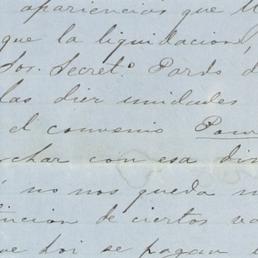 apariencias que
que la liquidacion,
Sor. Secreto. Pardo d
las dier unidades
el convenio
char con esa di
no nos queda
cion de ciertos va
ue hoi se pagan